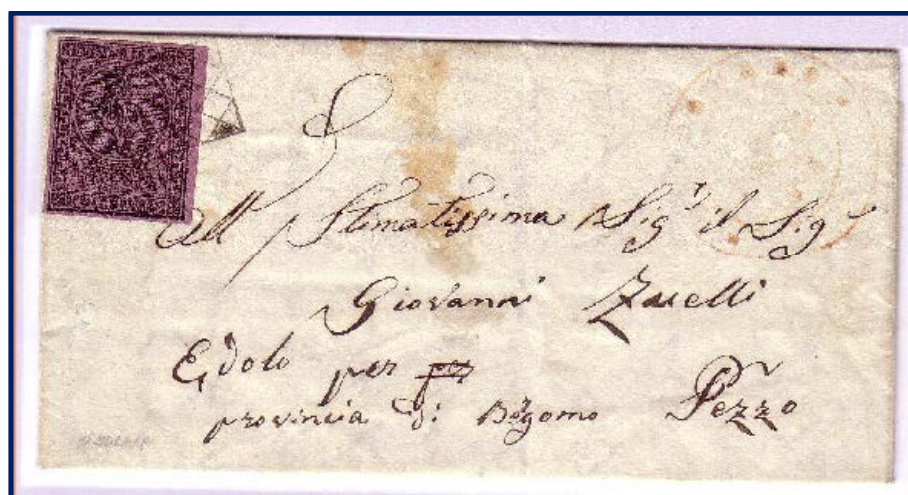 All Stimatissimo Sigr il Sigr
Giovanni Zuelli
Edolo per per Pezzo
provincia di Bergomo